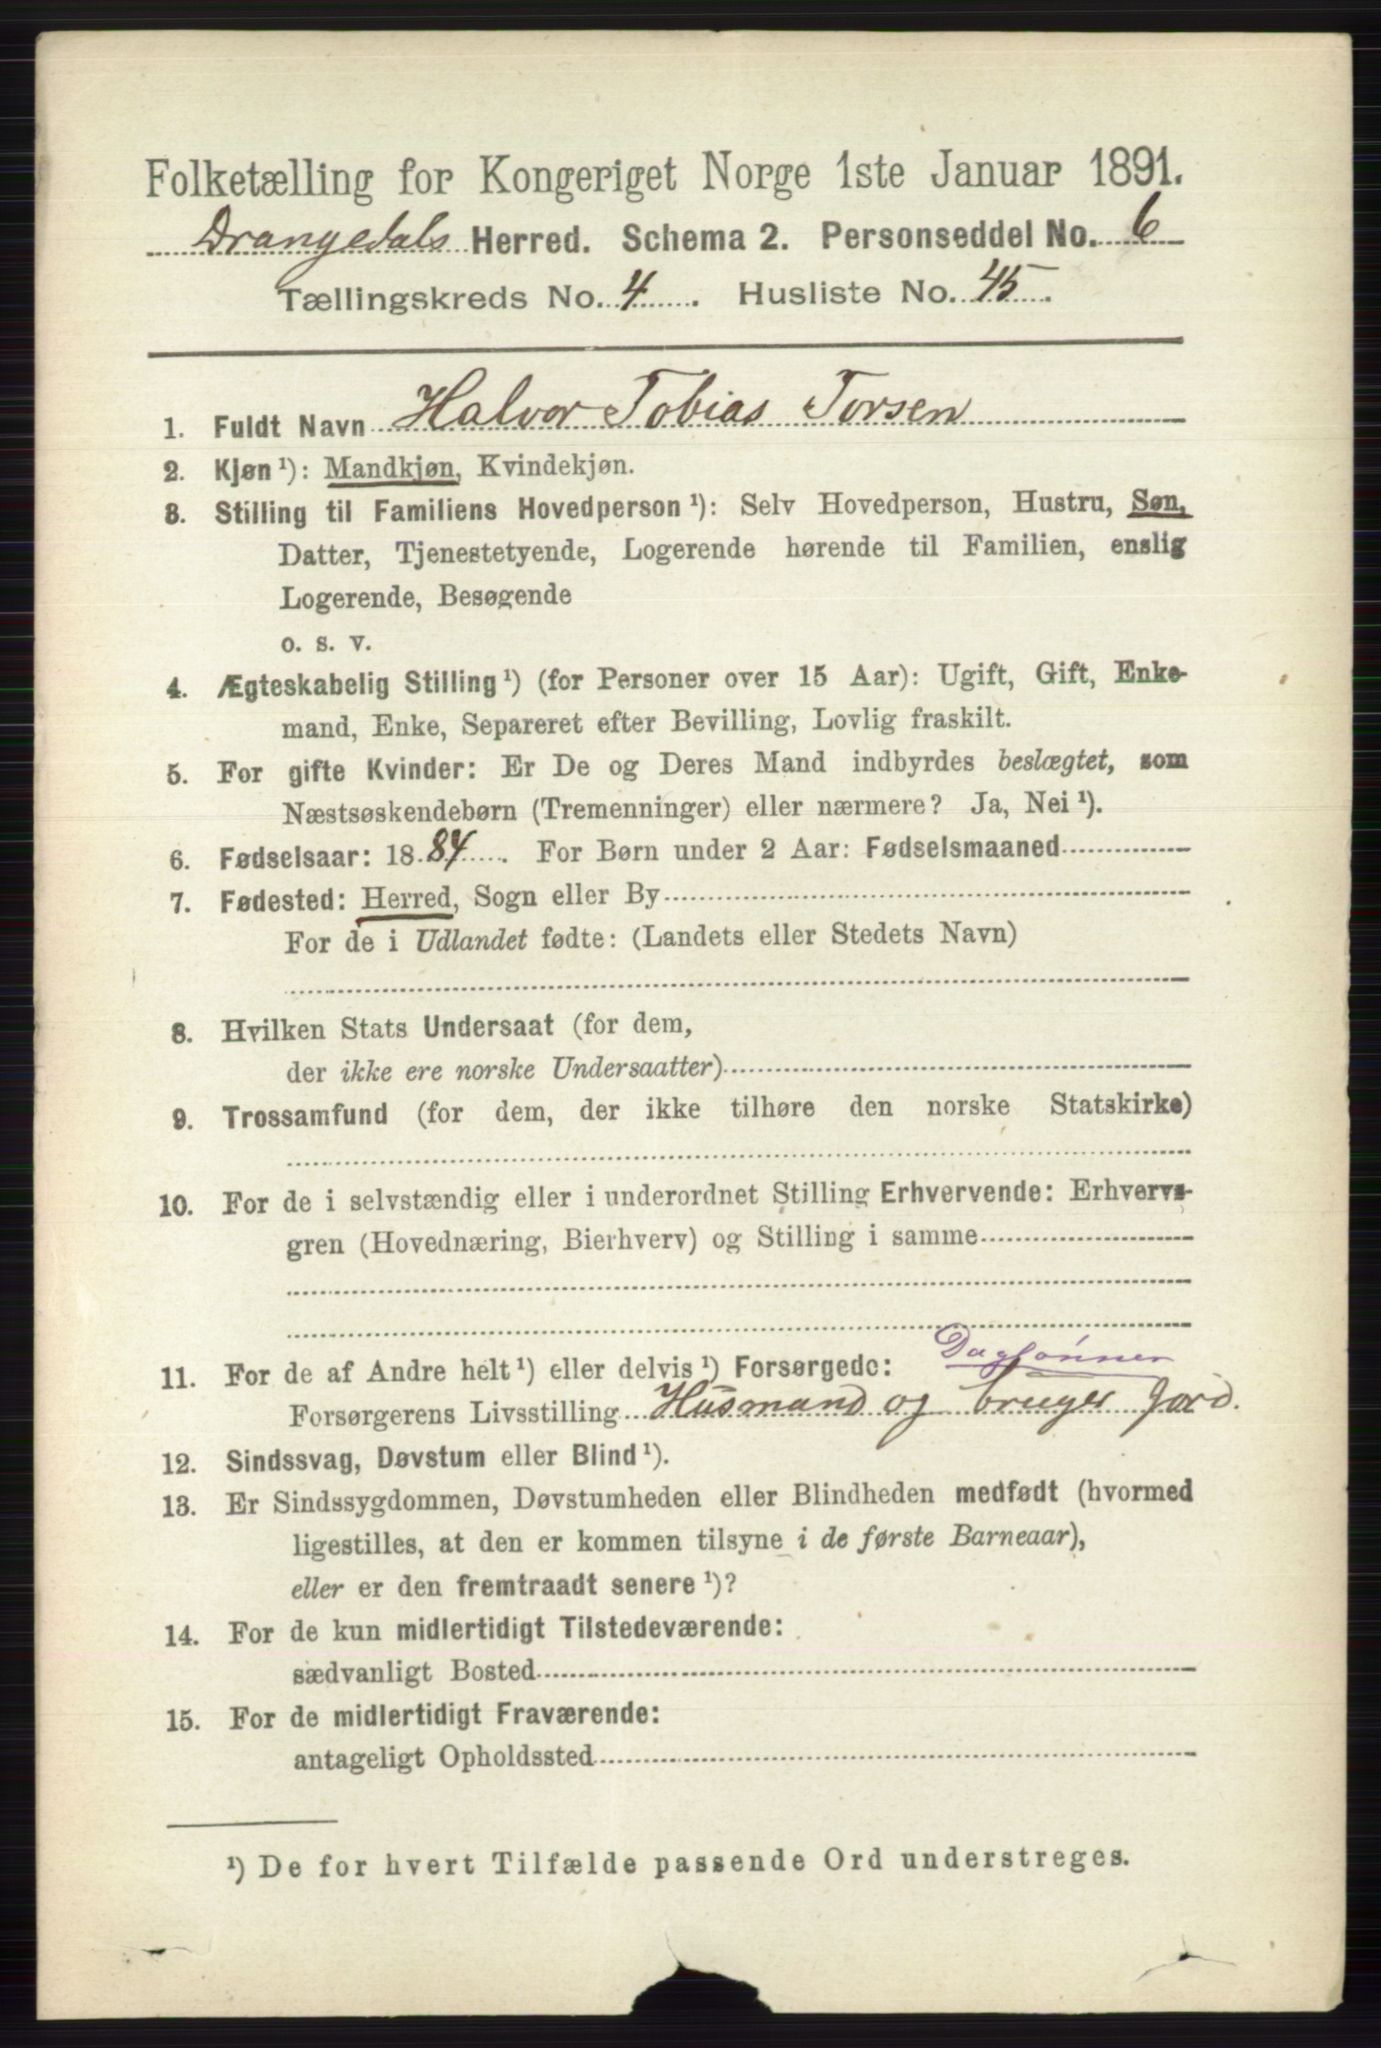 Folketælling for Kongeriget Norge 1ste Januar 1891.
Drangedals Herred. Schema 2. Personseddel No. 6
Tællingskreds No. 4. Husliste No. 45.
1. Fuldt Navn Halvor Tobias Torsen
2. Kjøn¹): Mandkjøn, Kvindekjøn.
3. Stilling til Familiens Hovedperson¹): Selv Hovedperson, Hustru, Søn,
Datter, Tjenestetyende, Logerende hørende til Familien, enslig
Logerende, Besøgende
o. s. v.
4. Ægteskabelig Stilling¹) (for Personer over 15 Aar): Ugift, Gift, Enke-
mand, Enke, Separeret efter Bevilling, Lovlig fraskilt.
5. For gifte Kvinder: Er De og Deres Mand indbyrdes beslægtet, som
Næstsøskendebørn (Tremenninger) eller nærmere? Ja, Nei¹).
6. Fødselsaar: 1884. For Børn under 2 Aar: Fødselsmaaned
7. Fødested: Herred, Sogn eller By
For de i Udlandet fødte: (Landets eller Stedets Navn)
8. Hvilken Stats Undersaat (for dem,
der ikke ere norske Undersaatter)
9. Trossamfund (for dem, der ikke tilhøre den norske Statskirke)
10. For de i selvstændig eller i underordnet Stilling Erhvervende: Erhvervs-
gren (Hovednæring, Bierhverv) og Stilling i samme
Dagsønner
11. For de af Andre helt¹) eller delvis¹) Forsørgede:
Forsørgerens Livsstilling Husmand og bruger Jord.
12. Sindssvag, Døvstum eller Blind¹).
13. Er Sindssygdommen, Døvstumheden eller Blindheden medfødt (hvormed
ligestilles, at den er kommen tilsyne i de første Barneaar),
eller er den fremtraadt senere¹)?
14. For de kun midlertidigt Tilstedeværende:
sædvanligt Bosted
15. For de midlertidigt Fraværende:
antageligt Opholdssted
¹) De for hvert Tilfælde passende Ord understreges.